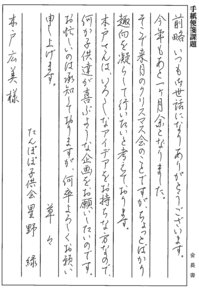 手紙便箋課題
前略 いつもお世話になりありがとうございます。
今年もあと一ヶ月余となりました。
そこで来月のクリスマス会のことですが、ちょっとばかり
趣向を凝らして行いたいと考えております。
木戸さんは、いろんなアイデアをお持ちな方なので、
何か子供達が喜ぶような企画をお願いしたいのです。
お忙しいのは承知しておりますが、何卒よろしくお願い
申し上げます。
草々
たんぽぽ子供会 星野 緑
木戸広美様